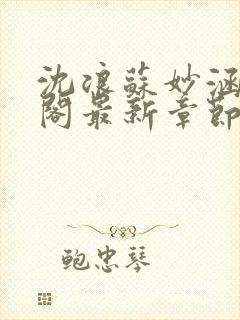 沈浪蘇妙涵
閣最新章節
鲍忠琴